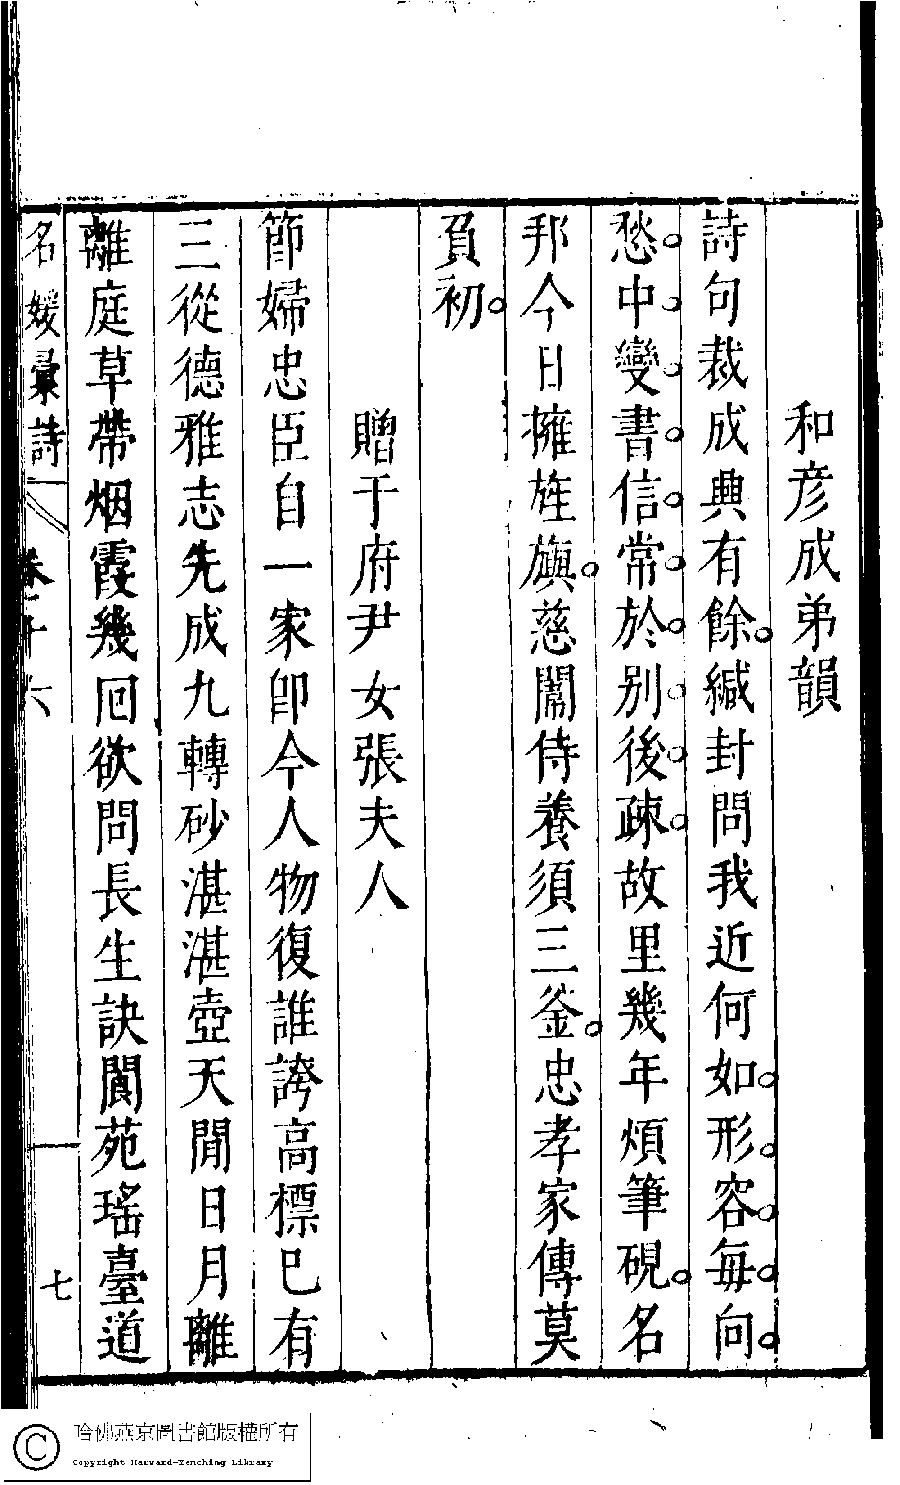 和彥成弟韻
詩句裁成興有餘。緘封問我近何如。形。容。每。向。
愁。中。變。書。信。常。於。别。後。疎。故里幾年煩筆硯。名
邦今日擁旌旟。慈闈侍養須三釜。忠孝家傳莫
負初。
贈于府尹女張夫人
節婦忠臣自一家卽今人物復誰誇高標巳有
三從德雅志先成九轉砂湛湛壺天閒日月離
離庭草帶烟霞幾回欲問長生訣閬苑瑤臺道
名媛彙詩 卷十六 七
哈佛燕京圖書館版權所有
Copyright Harvard-Yenching Library